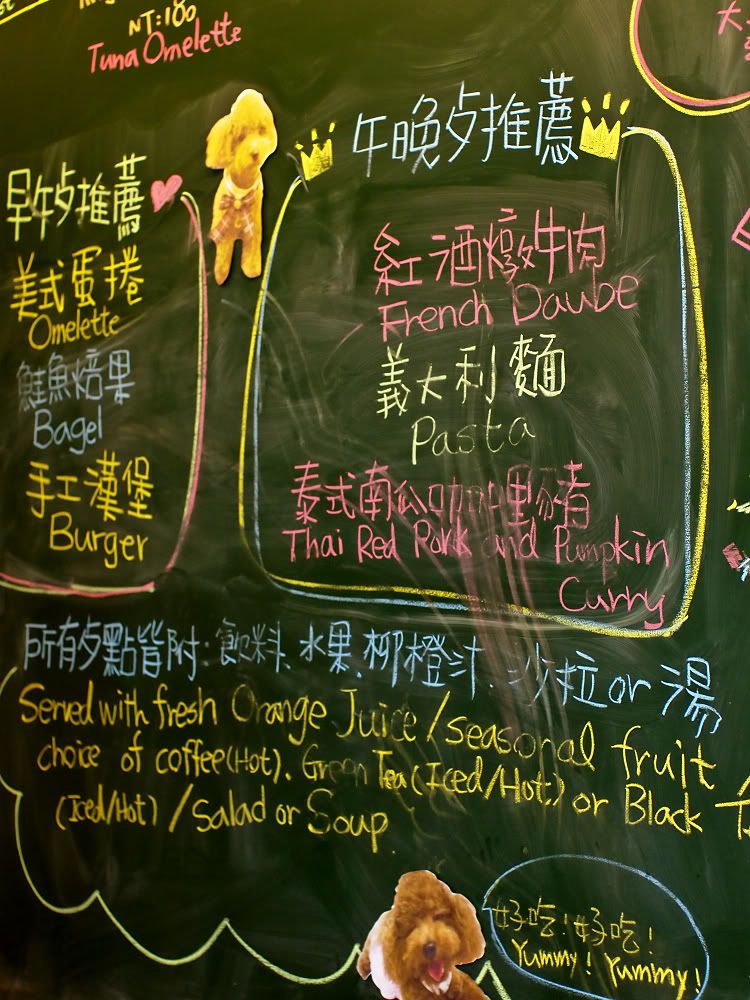 NT:180
Tuna Omelette
早午歺推薦
美式蛋捲
Omelette
鮭魚焙果
Bagel
手工漢堡
Burger
午晚歺推薦
紅酒燉牛肉
French Daube
義大利麵
Pasta
泰式南瓜咖哩豬
Thai Red Pork and Pumpkin
Curry
所有歺點皆附:飲料、水果、柳橙汁、沙拉or湯
Served with fresh Orange Juice/seasonal fruit
choice of coffee(Hot). Green Tea(Iced/Hot) or Black
(Iced/Hot)/Salad or Soup
好吃!好吃!
Yummy! Yummy!